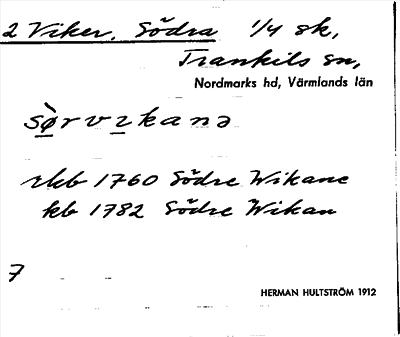 2 Viker, Södra 1/4 sk,
Trankils sn,
Nordmarks hd, Värmlands län
sø̀rvɪkanə
rkb 1760 Södre Wikane
kb 1782 Södre Wikan
7
HERMAN HULTSTRÖM 1912